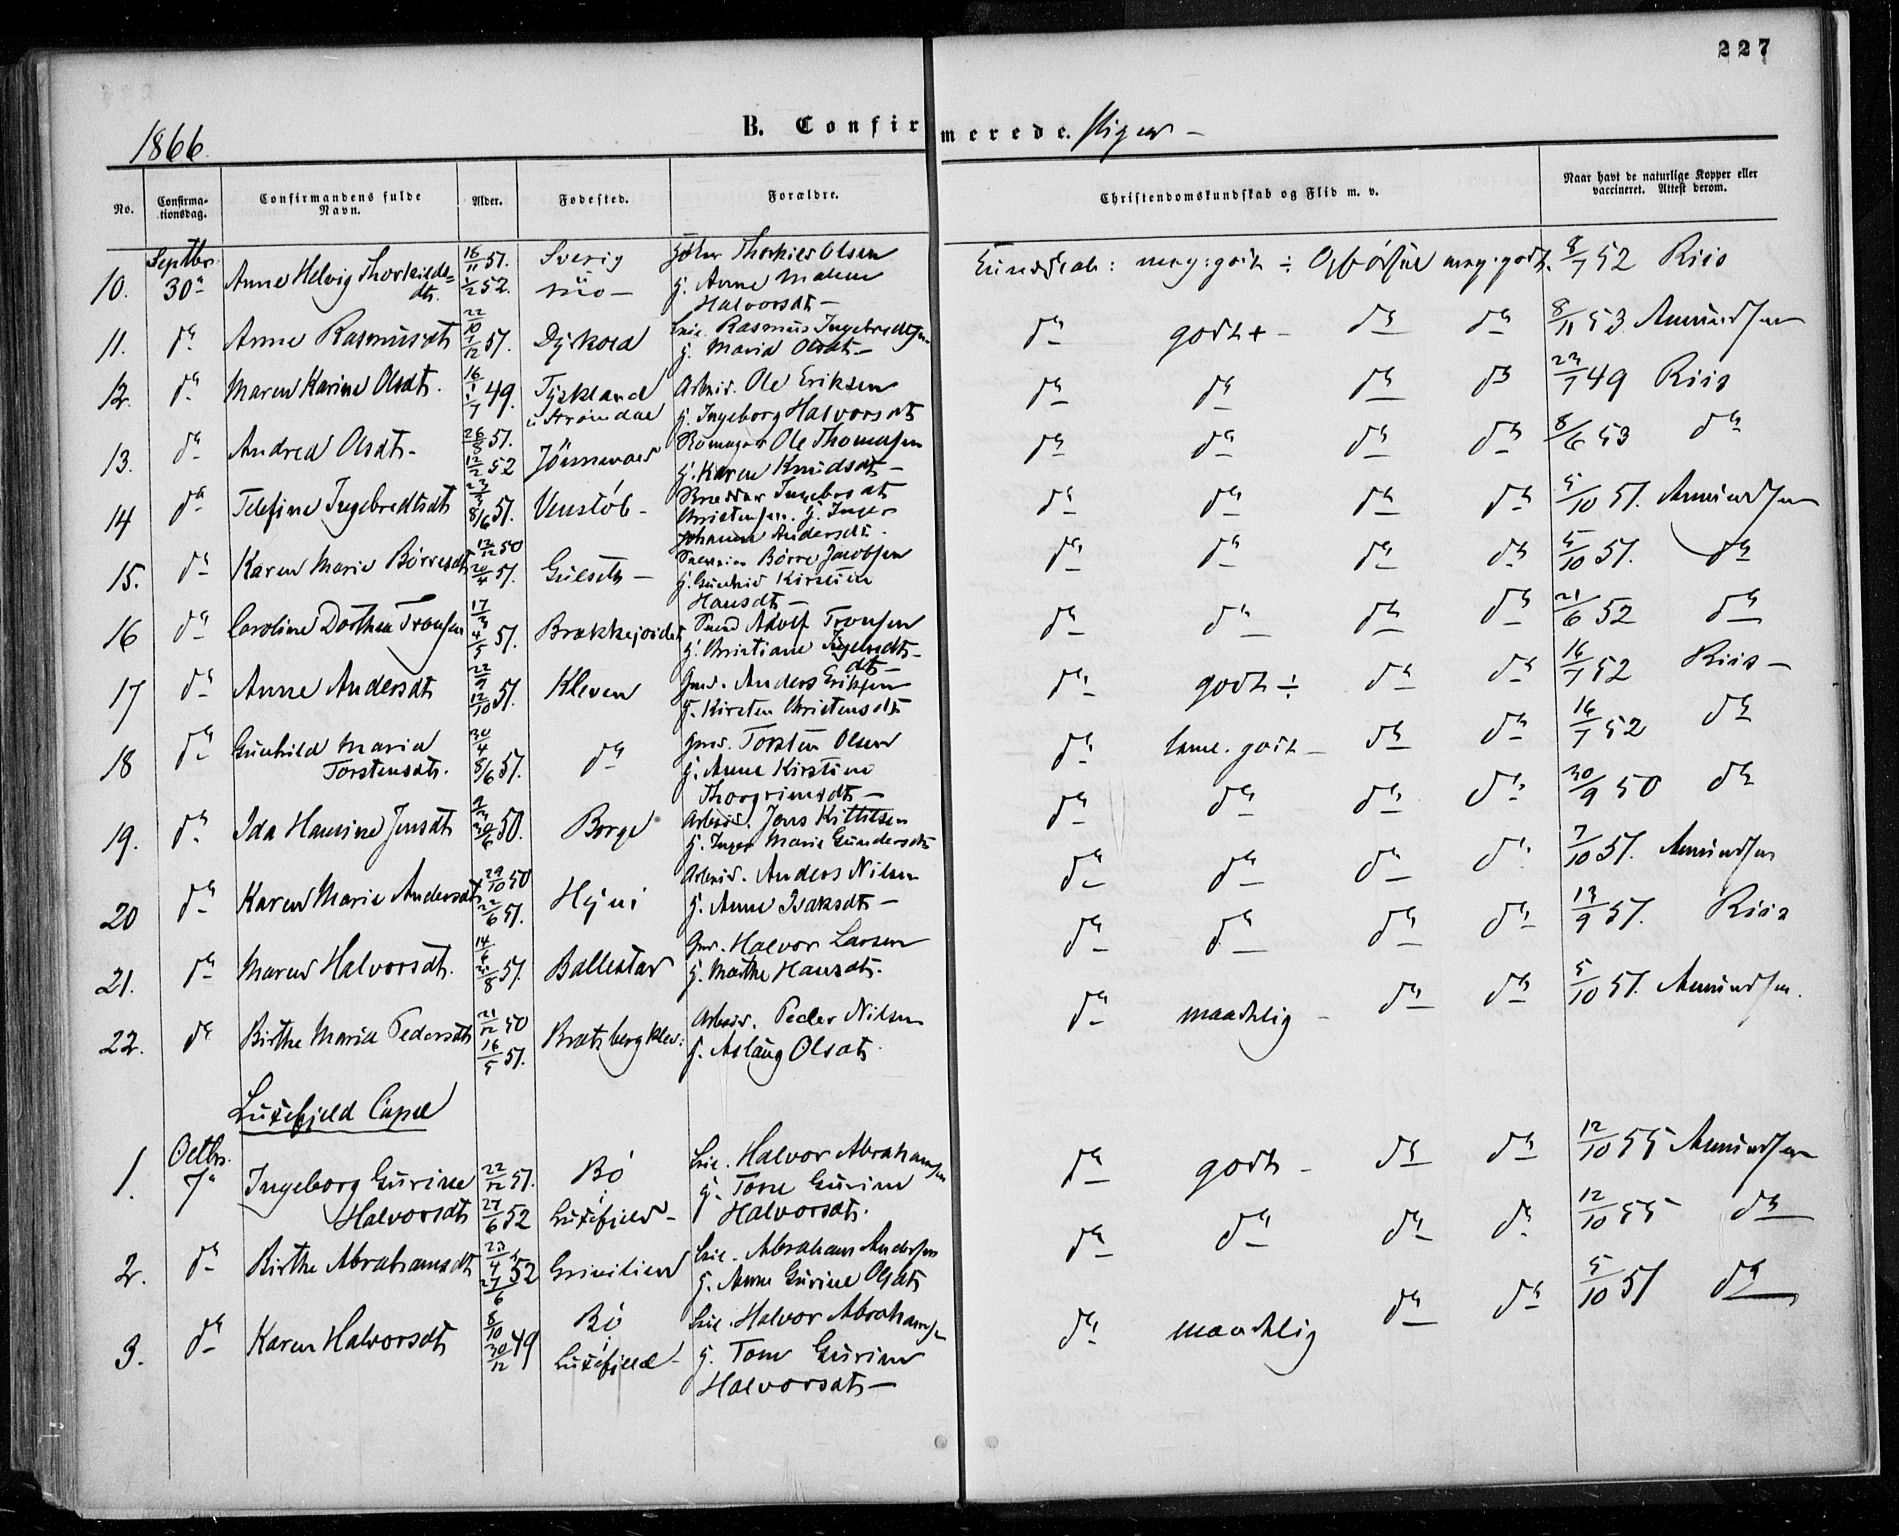 227
1866.
B. Confirmerede. Piger –
No.
Confirmationsdag.
Confirmandens fulde Navn.
Alder.
Fødested.
Forældre.
Christendomskundskab og Flid m. v.
Naar havt de naturlige Kopper eller vaccineret. Attest derom.
10. Septbr. 30 Anne Helvig Thorkilds= 16/11 51. Sverig
dtr. 1/2 52. Olsen
G. Anne Malene
Halvorsdtr –
Kundskab: meg: godt ÷ Opførsel meg: godt. 8/7 52 Riis
11. do Anne Rasmusdtr 22/10 1/12 51. Rasmus Ingebredtsen
G. Maria Olsdtr –
do godt + – do do 8/11 53 Amundsen
12. do Maren Karine Olsdtr. 16/1 1/7 49. Arbeid. Ole Eriksen
G. Ingeborg Halvorsdtr
do do do do 23/7 49 Riis
13. do Andrea Olsdtr. 26/8 51. 12/2 52 Ole Thomasen
G. Karen Knudsdtr –
do do do do 8/6 53 do
14 do Telefine Ingebredtsdtr 8/6 51. Venstøb – Ingebredt
Christensen. G. Inger
Johanne Andersdtr.
do do do do 5/10 51. Amundsen
15. do Karen Marie Børresdtr 12/12 50 20/4 51. Gulseth – Børre Jacobsen
G. Gunhild Kirstine
Hansdtr –
do do do do 5/10 51. do
16 do Caroline Dorthea Tronsen 17/3 4/5 51. Brækkejordet Adolf Tronsen
G. Christiane
dtr –
do do do do 21/6 52 do
17 do Anne Andersdtr 22/9 12/10 51. Kleven Gmd. Anders Eriksen
G. Kirsten Christensdtr
do godt ÷ do do 16/7 52 Riis –
18 do Gunhild Maria 30/4 8/6 51. do Gmd. Torsten Olsen
Torstensdtr. G. Anne Kirstine
Thorgrimsdtr –
do teml. godt – do do 16/7 52 do
19. do Ida Hansine Jensdtr 2/3 30/6 50. Borge Arbeid. Jens Kittilsen
G. Inger Marie Gundersdtr
do do do do 30/9 50 do
20 do Karen Marie Andersdtr 29/10 50 22/6 51. Hejni Arbeid. Anders Nilsen
G. Anne Isaksdtr –
do do do do 7/10 51. Amundsen
21. do Maren Halvorsdtr. 14/6 51. Ballestad Gmd. Halvor Larsen
G. Marthe Hansdtr.
do do do do 13/9 51. Riis
22. do Birthe Maria Pedersdtr 21/12 50 16/5 51. Bratsbergklev: Arbeid. Peder Nilsen
G. Aslaug Olsdtr.
do maadelig – do do 5/10 51. Amundsen.
Luxefjeld Capel
1. Octbr. 7 Ingeborg Gurine 22/12 51. Bø Halvor Abrahamsen
Halvorsdtr 27/6 52 Luxefjeld – G. Tone Gurine
Halvorsdtr.
do godt – do do 12/10 55 Amundsen
2. do Birthe Abrahamsdtr 23/4 52 27/6 Grinilien Abraham Andersen
G. Anne Gurine Olsdtr
do do do do 12/10 55 do
3. do Karen Halvorsdtr 8/10 49 30/12 Bø Halvor Abrahamsen
Luxefjeld – G. Tone Gurine
Halvorsdtr –
do maadelig do do 5/10 51 do